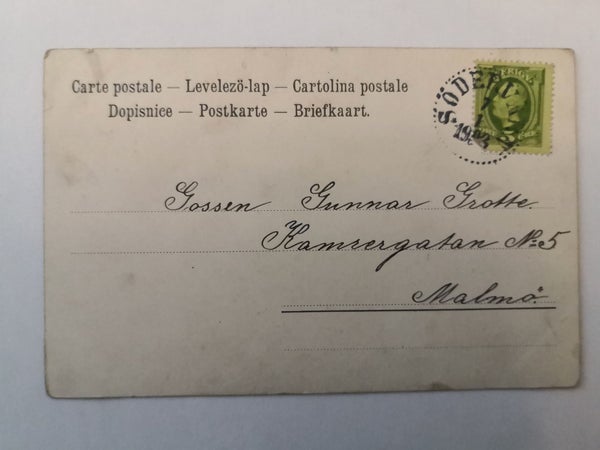 Carte postale — Levelezö-lap — Cartolina postale
Dopisnice — Postkarte — Briefkaart.
SVERIGE
7
1
Gossen Gunnar Grotte.
Kamrergatan No 5
Malmö.